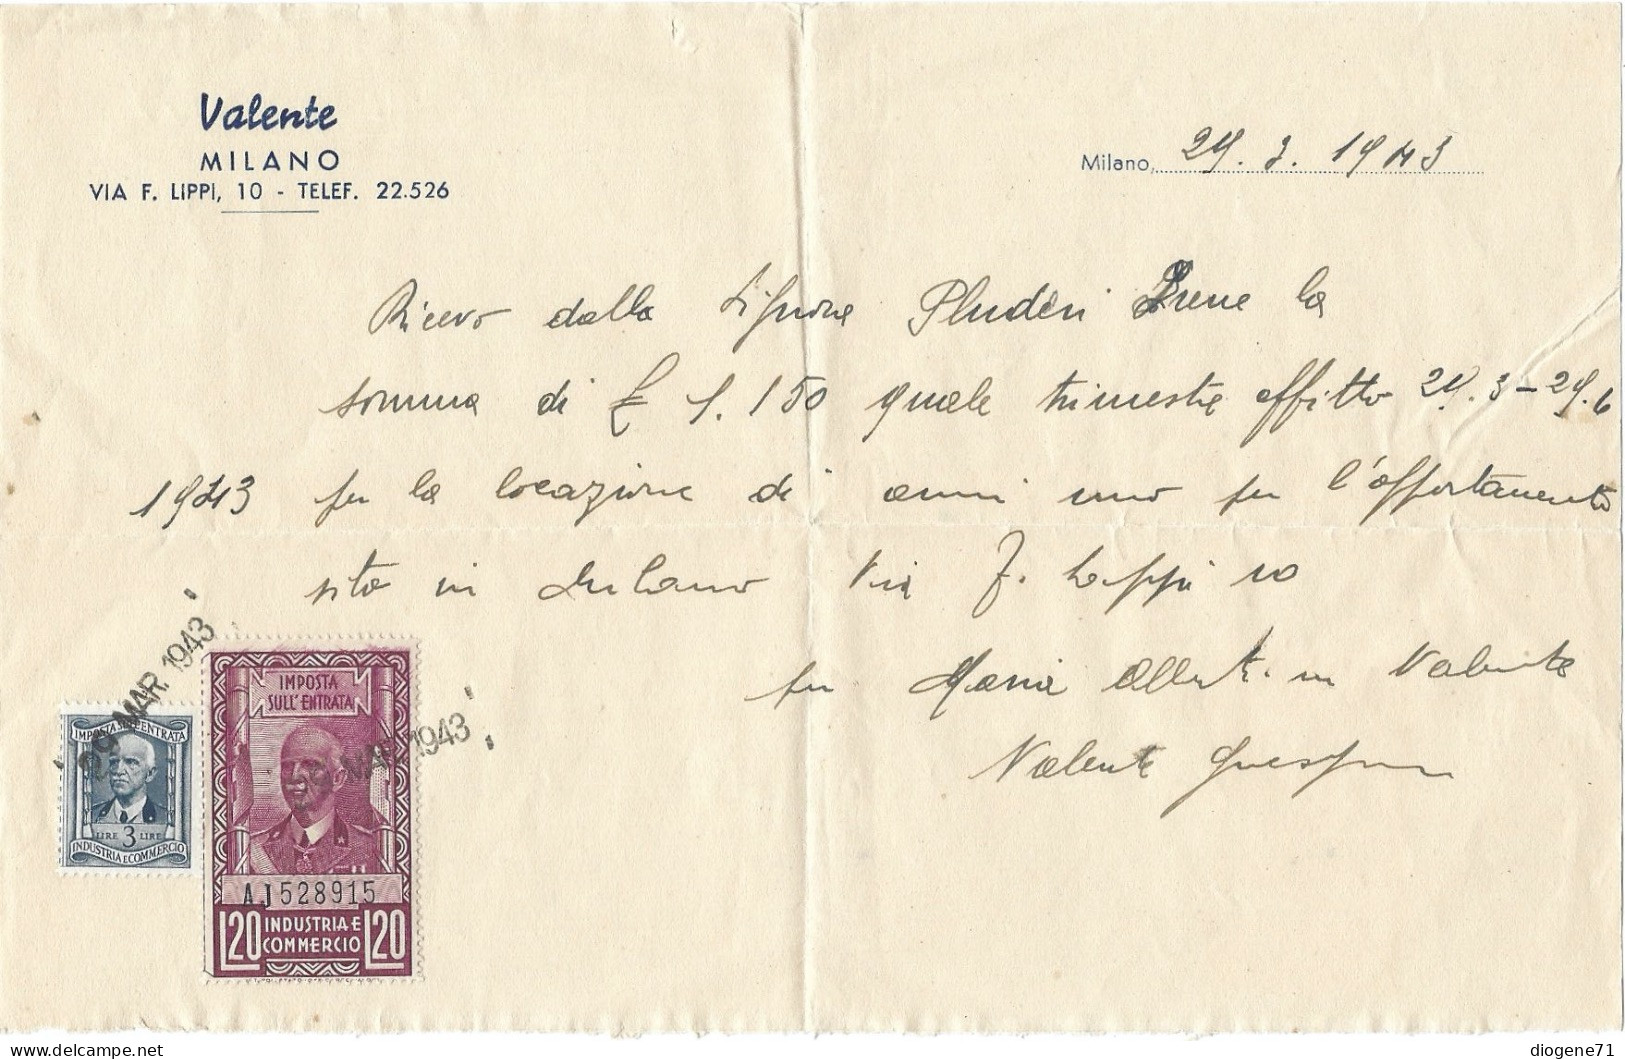 Valente
MILANO
VIA F. LIPPI, 10 - TELEF. 22.526
Milano, 29.3.1943
Ricevo dalla Signora Pluderi Irene la
somma di £ 1.150 quale trimestre affitto 29.3-29.6
1943 per la locazione di anni uno per l'appartamento
sito in Milano Via F. Lippi 10
per Maria in Valente
Valente
29 MAR. 1943
29 MAR. 1943
IMPOSTA SULL'ENTRATA
LIRE 3 LIRE
INDUSTRIA E COMMERCIO
IMPOSTA
SULL'ENTRATA
AJ528915
L20 INDUSTRIA E COMMERCIO L20
diogene71